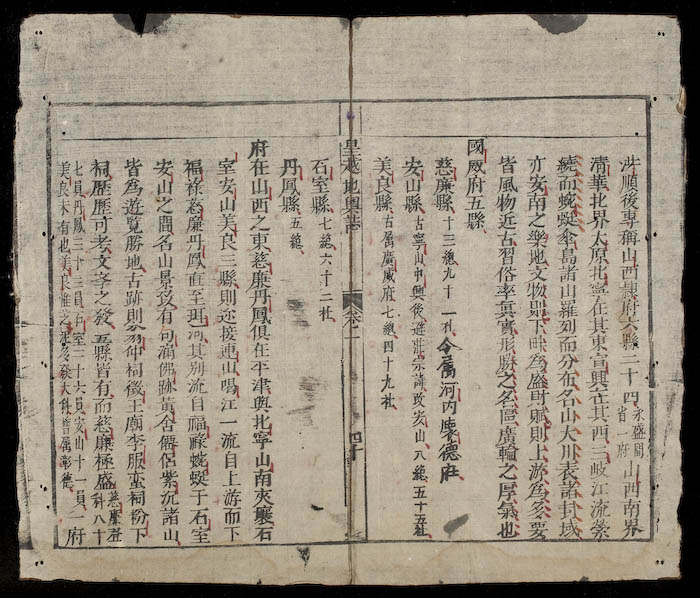 洪順後專稱山西隸府六縣二十四永盛間省一府山西南界
清華北界太原北寧在其東宣興在其西三岐江流縈
繞而蜿蜒傘島諸山羅列而分布名山大川表諸封域
亦安南之樂地文物則下畔為盛財賦則上游為多要
皆風物近古習俗率眞實形勝之名區廣輪之厚氣也
國威府五縣
慈廉縣十三總九十一社今屬河內懷德社
安山縣古寧山中興後避莊宗諱改安山八總五十五社
美良縣古屬廣威府七總四十九社
皇越地輿誌 卷二 四十
石室縣七總六十二社
丹鳳縣五總
府在山西之東慈廉丹鳳俱在平津與北寧山南夾襄石
室安山美良三縣則迩接連山喝江一流自上游而下
福祿慈廉丹鳳直至珥河其別流自福祿蜿蜒于石室
安山之間名山景致有句漏佛跡黃舍僊侶紫沉諸山
皆為遊覽勝地古跡則翁仲祠徵王廟李服蛮祠粉下
祠歷歷可考文學之發五縣皆有而慈廉極盛慈廉社科八十
七員丹鳳三十三員石室二十六員安山十一員府
美良未有也美良惟大科舊属彰德